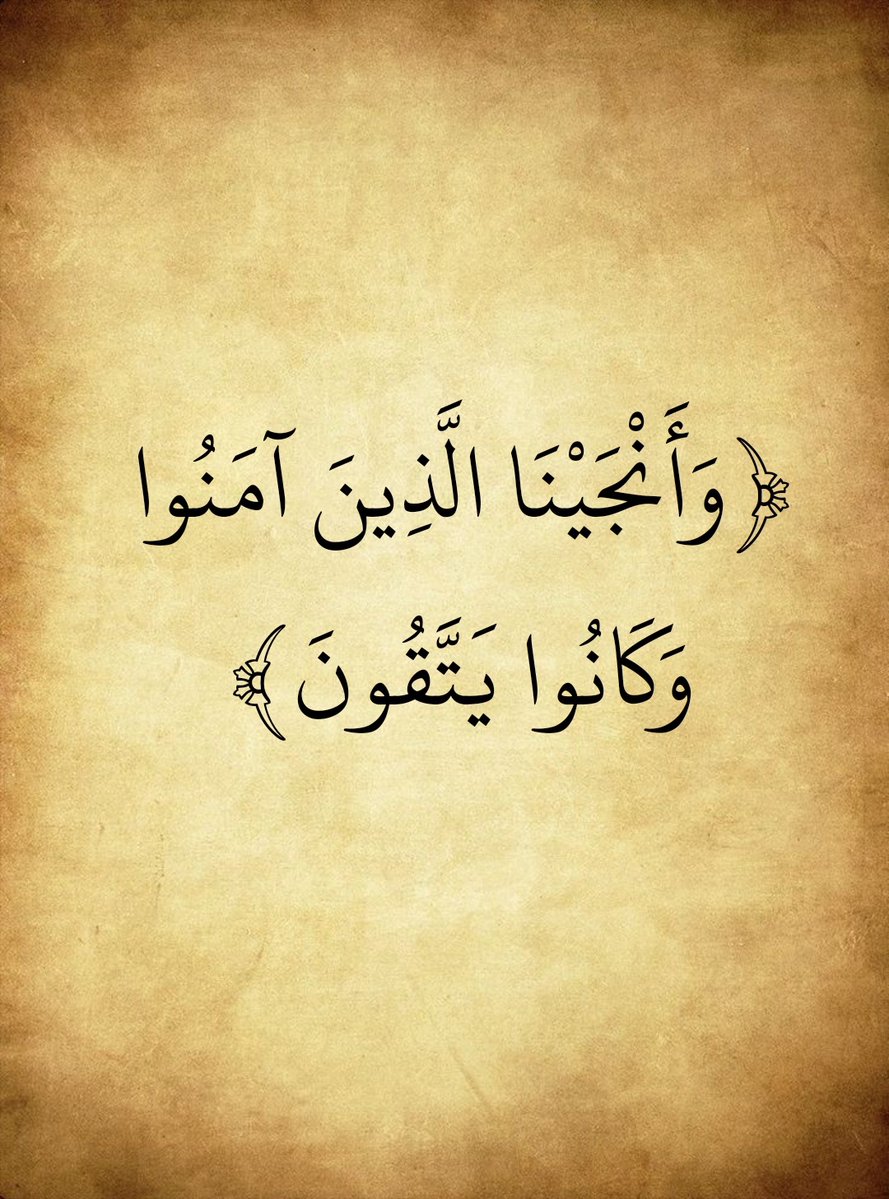 ﴿ وَأَنْجَيْنَا الَّذِينَ آمَنُوا
وَكَانُوا يَتَّقُونَ ﴾